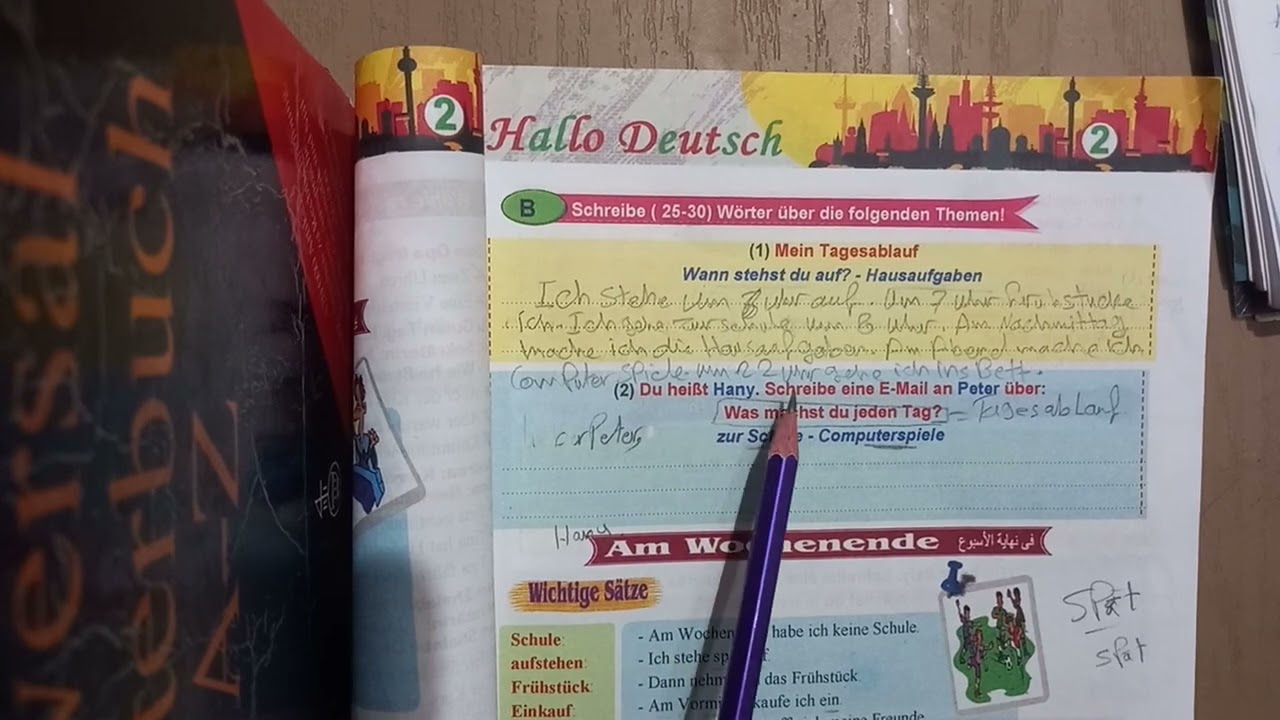 2
Hallo Deutsch
2
B
Schreibe ( 25-30) Wörter über die folgenden Themen!
(1) Mein Tagesablauf
Wann stehst du auf? - Hausaufgaben
Ich stehe um uhr auf. Um 7 uhr frühstücke
ich. Ich gehe zur schule um 8 uhr. Am Nachmittag
mache ich die Hausaufgaben. Am Abend mache ich
Computer spiele. um 22 uhr gehe ich ins Bett.
(2) Du heißt Hany. Schreibe eine E-Mail an Peter über:
Was machst du jeden Tag? = Tagesablauf
Peter, zur - Computerspiele
Hany
Am Wochenende في نهاية الأسبوع
Wichtige Sätze
Schule: - Am habe ich keine Schule.
aufstehen: - Ich stehe
Frühstück: - Dann das Frühstück.
Einkauf: - Am kaufe ich ein.
meine Freunde
spät
spät
ersal
erbuch
A-Z